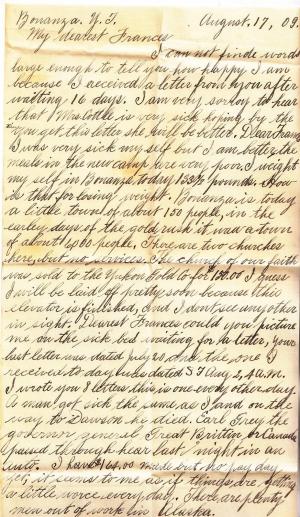 Bonanza. Y. T. August. 17, 09.
My dearest Frances
I can not finde words
large enough to tell you how happy I am
because I received a letter from you after
waiting 16 days. I am very sorry to hear
that Mrs Lottle is very sick hoping by the
you get this letter she will be better. Dear Fran
I was very sick my self but I am better the
meals in the new camp are very poor. I weight
my self in Bonanza, today 133½ pounds. How
is that for losing weight. Bonanza is today
a little town of about 150 people, in the
earley days of the gold rush it was a town
of about 4000 people. There are two churches
here, but no services. The church of our faith
was sold to the Yukon Gold Co for $150.00 I guess
I will be laid off pretty soon because the
elevator is finished, and I don't see any other
in sight. Dearest Frances could you picture
me on the sick bed waiting for a letter, your
last letter was dated July 20 and the one I
received to day was dated S F Aug 2, 4 a.m.
I wrote you 8 letters this is one every other day.
A man got sick the same as I and on the
way to Dawson he died. Earl Grey the
governor general Great Brittin or Canada
passed through hear last night in an
auto. I have $164.00 made but no pay day
yet, it seems to me as if things are getting
a little worse every day. There are plenty
men out of work in Alaska.